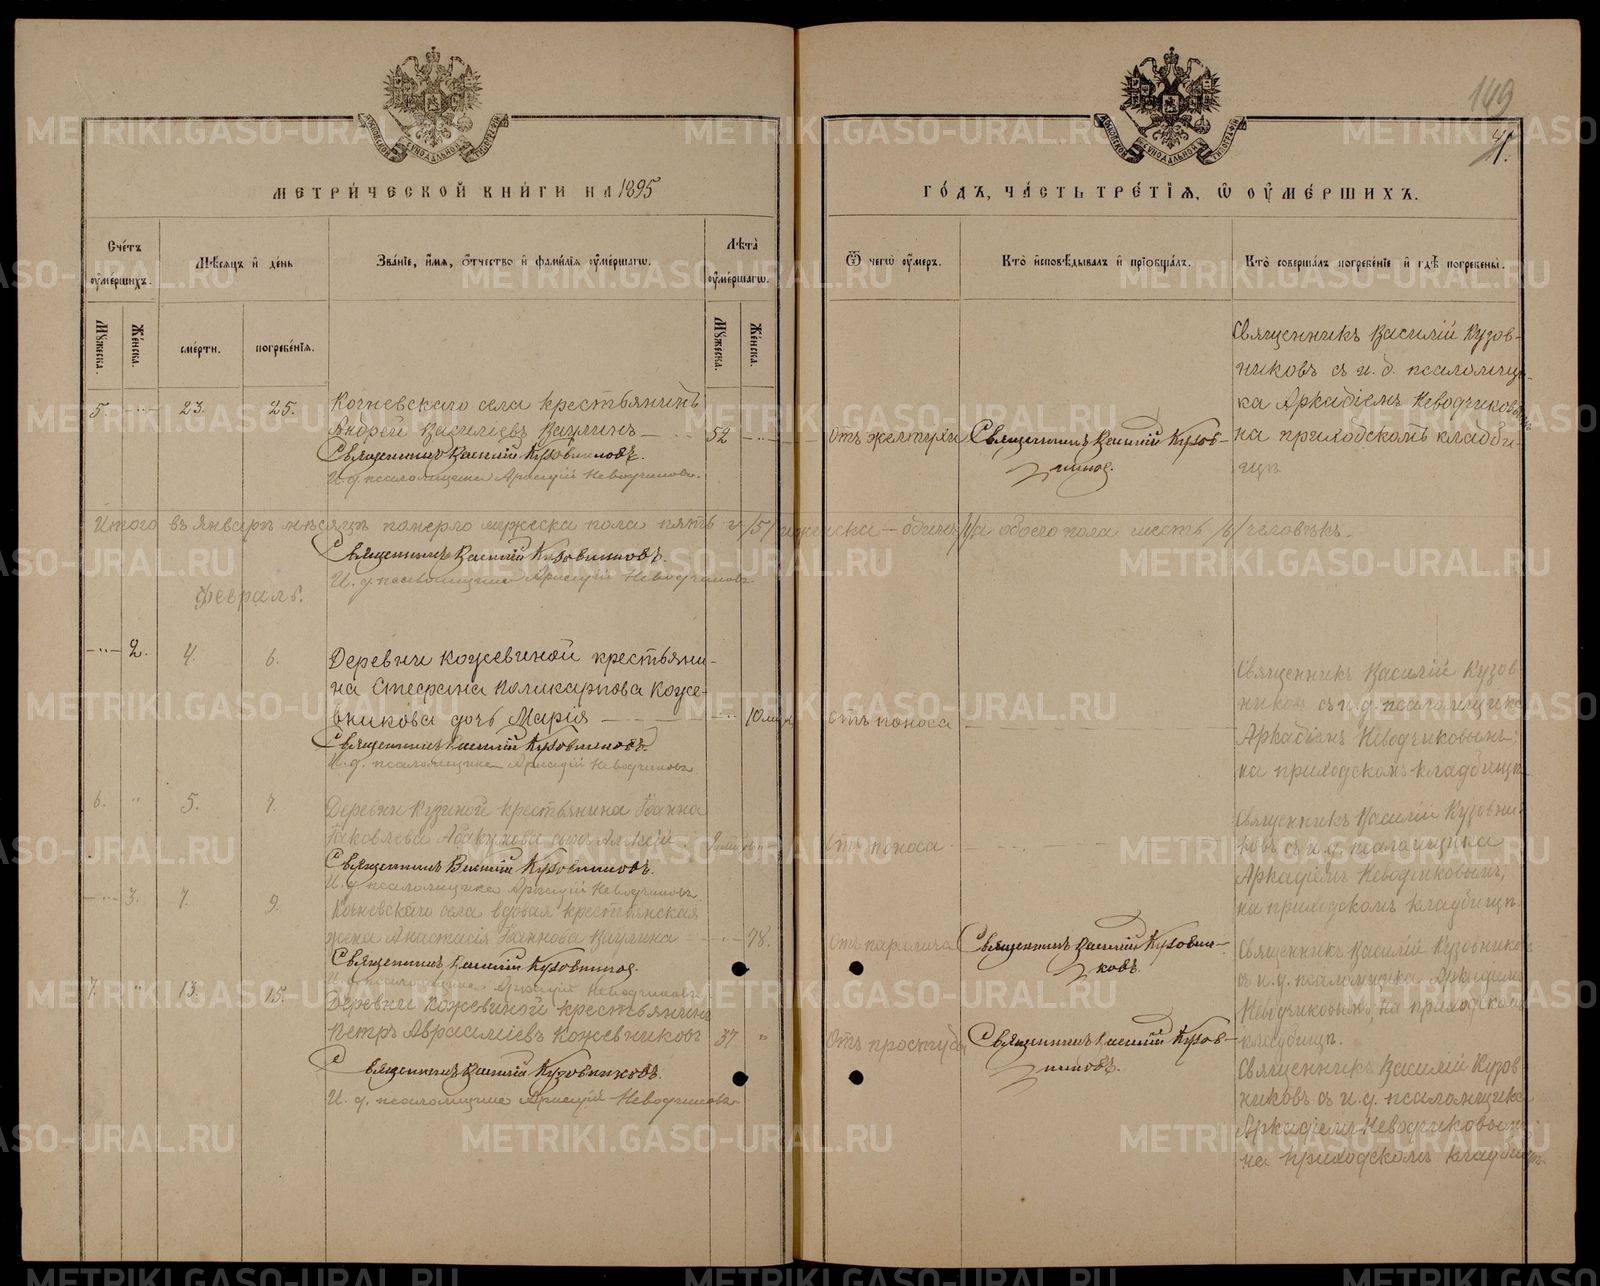 149
МЕТРИ́ЧЕСКОЙ КНИ́ГИ НА 1895
ГО́ДЪ, ЧА́СТЬ ТРЕ́ТІЯ, Ѿ ОУМЕ́РШИХЪ.
Сче́тъ оуме́ршихъ.
Мѣсяцъ и де́нь
Зва́ніе, и́мя, ѻ́тчество и фами́лія оуме́ршагѡ.
Лѣта̀ оуме́ршагѡ.
Ѿ чегѡ̀ оу́меръ.
Кто̀ исповѣ́дывалъ и пріобща́лъ.
Кто̀ соверша́лъ погребе́ніе и гдѣ̀ погребены̀.
Му́жеска.
Же́нска.
сме́рти.
погребе́нія.
Му́жеска.
Же́нска.
5. 23. 25. Кочневскаго села крестьянинъ
Андрей Васильевъ Ваулинъ 52
Священникъ Василій Кузовниковъ.
И. д. псаломщика Аркадій Неводчиковъ.
отъ желтухи
Священникъ Василій Кузов-
никовъ.
Священникъ Василій Кузов-
никовъ съ и. д. псаломщи-
ка Аркадіемъ Неводчиковымъ
на приходскомъ кладби-
щѣ.
Итого въ Январѣ мѣсяцѣ померло мужеска пола пять /5/ женска – одинъ /1/ а обоего пола шесть /6/ человѣкъ.
Священникъ Василій Кузовниковъ.
И. д. псаломщика Аркадій Неводчиковъ
Февраль.
2. 4. 6. Деревни Кожевиной крестьяни-
на Стефана Поликарпова Коже-
вникова дочь Марія 10 мѣс.
Священникъ Василій Кузовниковъ.
И. д. псаломщика Аркадій Неводчиковъ
отъ поноса
Священникъ Василій Кузов
никовъ съ и. д. псаломщика
Аркадіемъ Неводчиковымъ,
на приходскомъ кладбищѣ.
6. 5. 7. Деревни Кузиной крестьянина Іоанна
Іаковлева Абакумова сынъ Алексій
Священникъ Василій Кузовниковъ.
И. д. псаломщика Аркадій Неводчиковъ
Отъ поноса
Священникъ Василій Кузовни-
ковъ съ и. д. псаломщика
Аркадіемъ Неводчиковымъ,
на приходскомъ кладбищѣ.
3. 7. 9. Кочневскаго села вдовая крестьянская
жена Анастасія Іоаннова Ваулина 78.
Священникъ Василій Кузовниковъ.
И. д. псаломщика Аркадій Неводчиковъ
отъ паралича
Священникъ Василій Кузовни-
ковъ.
Священникъ Василій Кузовников
съ и. д. псаломщика Аркадіемъ
Неводчиковымъ, на приходском
кладбищѣ.
7. 13. 15. Деревни Кожевиной крестьянинъ
Петръ Аврааміевъ Кожевниковъ 37
Священникъ Василій Кузовниковъ.
И. д. псаломщика Аркадій Неводчиковъ
Отъ простуды
Священникъ Василій Кузов-
никовъ.
Священникъ Василій Кузов
никовъ съ и. д. псаломщика
Аркадіемъ Неводчиковым
на приходскомъ кладбищѣ.
METRIKI.GASO-URAL.RU